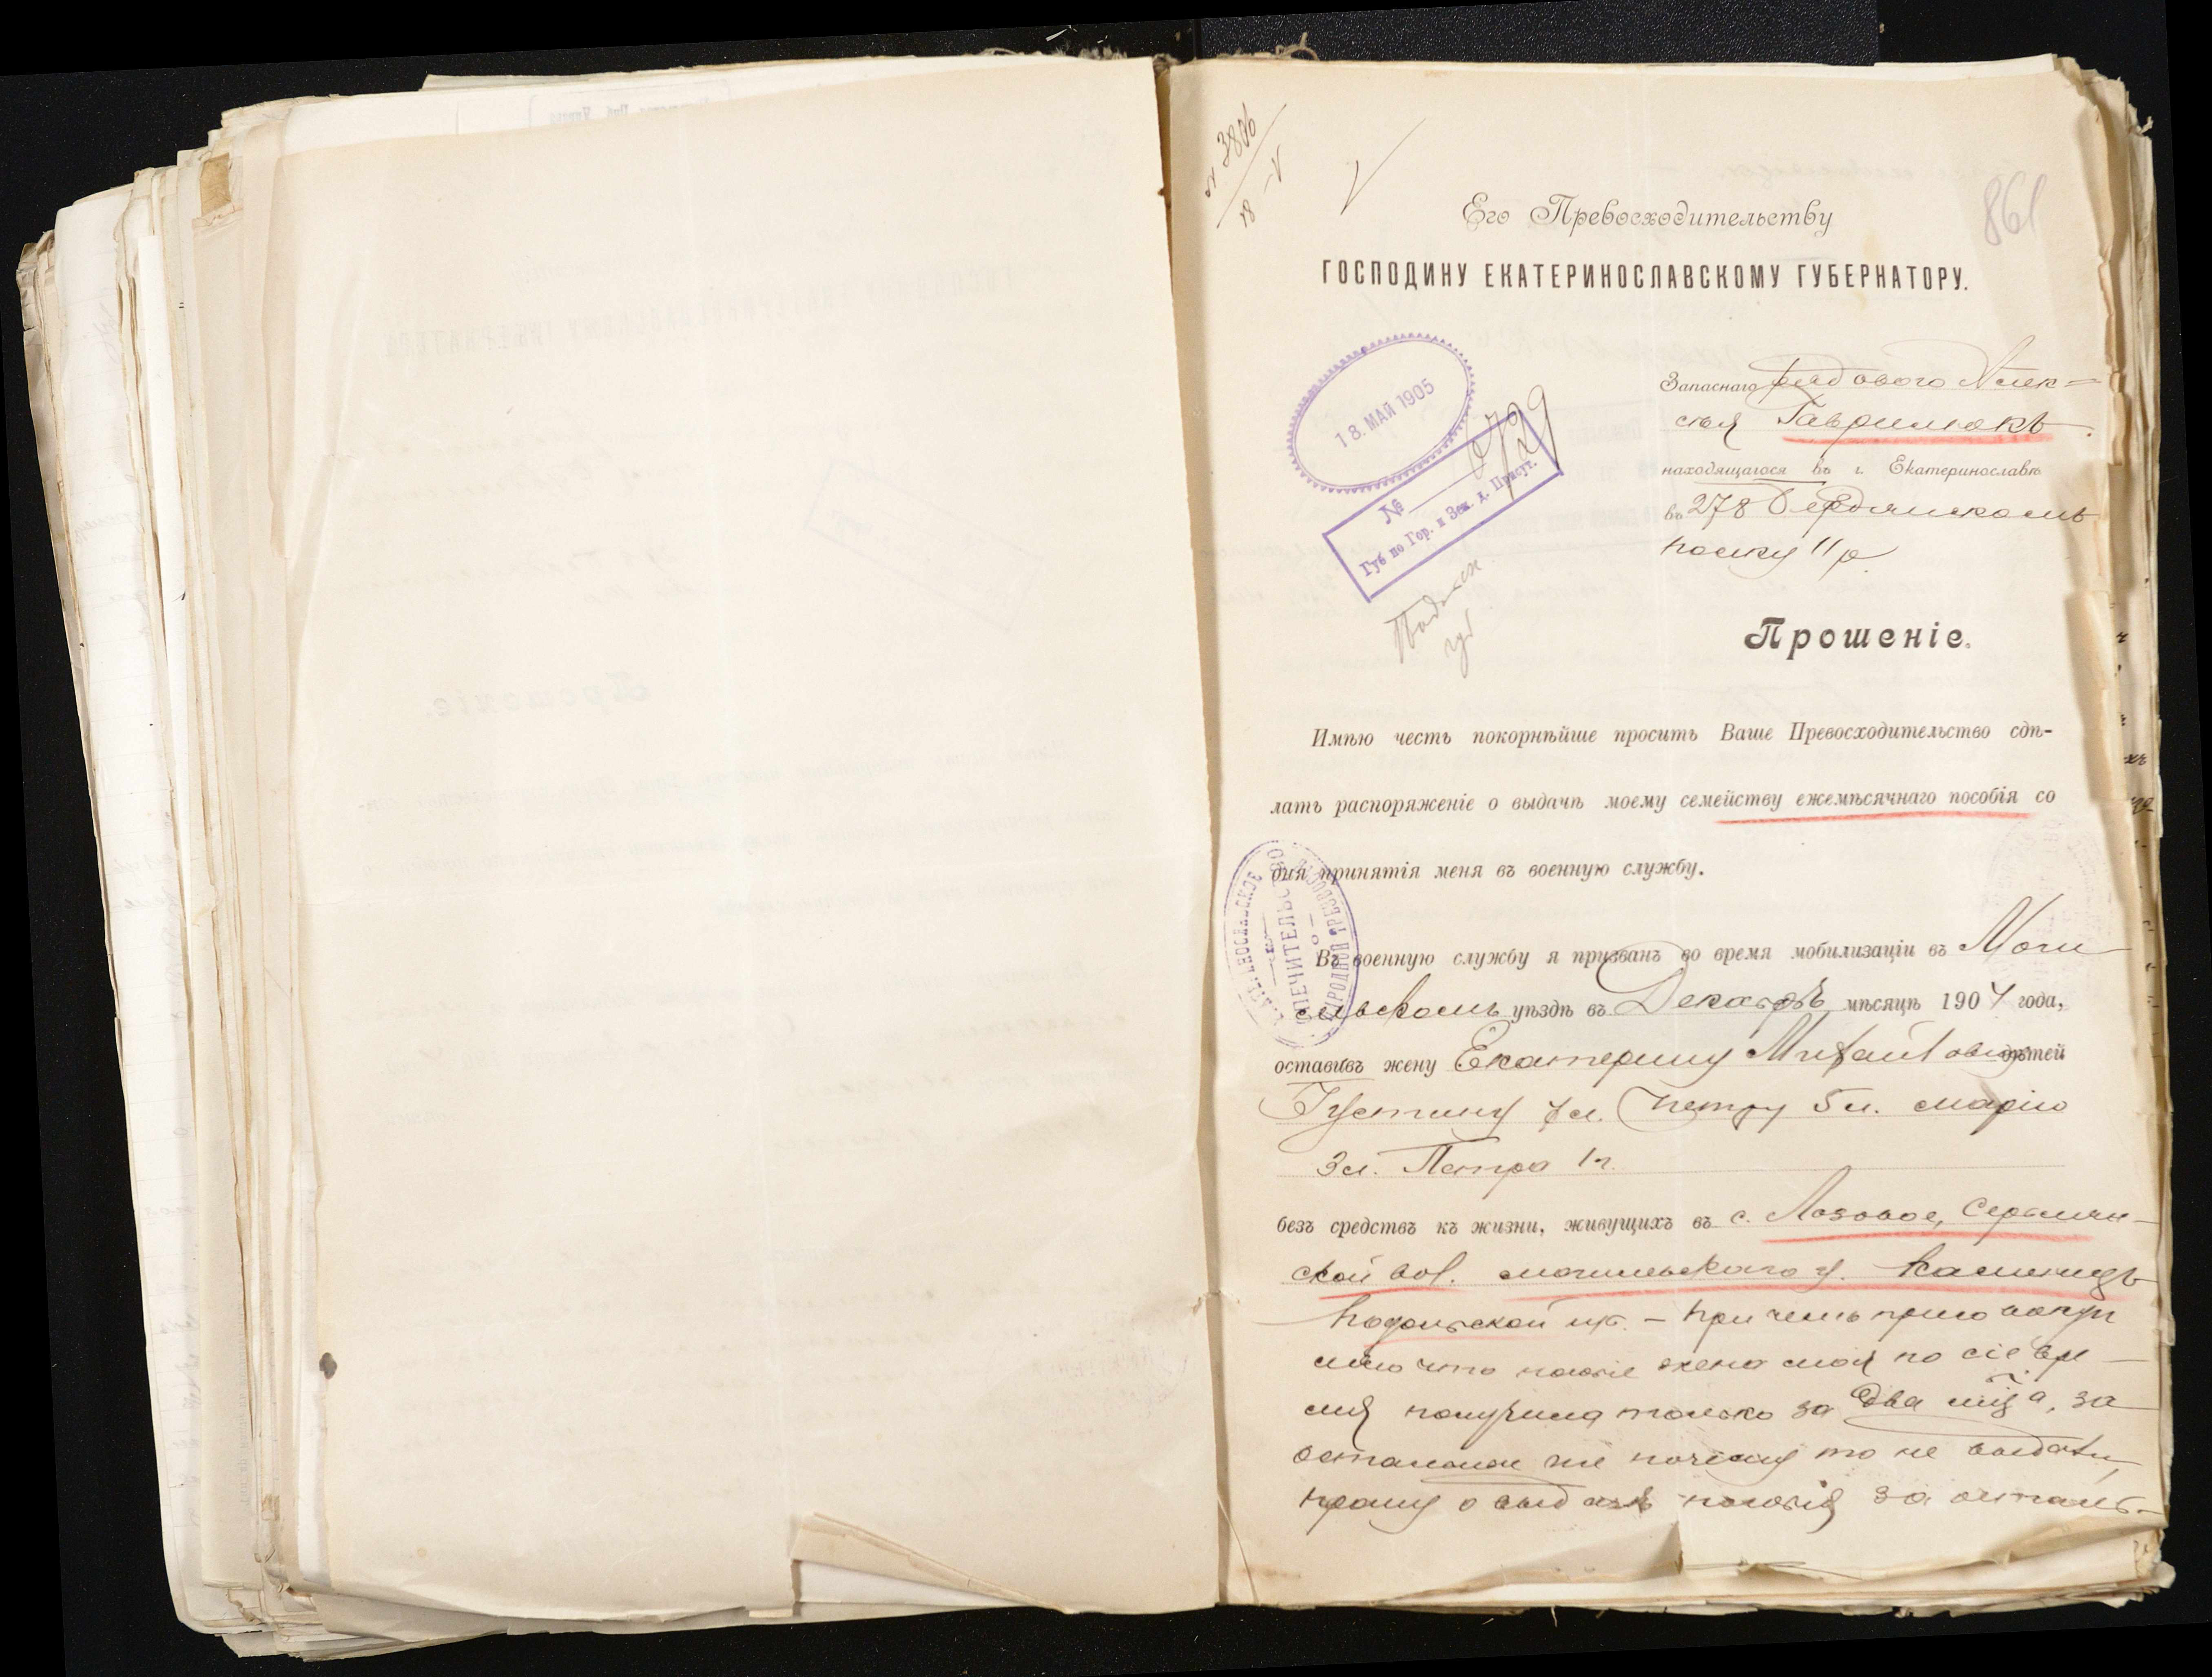 № 3806
18 – V
861
Его Превосходительству
ГОСПОДИНУ ЕКАТЕРИНОСЛАВСКОМУ ГУБЕРНАТОРУ.
18. МАЙ 1905
№
Губ по Гор. и Зем. д. Присут.
Запаснаго рядового Алек-
сѣя Гаврилюкъ
находящагося въ г. Екатеринославѣ
въ 278 Бердянскомъ
полку 11 р.
Прошеніе.
Имѣю честь покорнѣйше просить Ваше Превосходительство сдѣ-
лать распоряженіе о выдачѣ моему семейству ежемѣсячнаго пособія со
дня принятія меня въ военную службу.
ПОПЕЧИТЕЛЬСТВО
О
НАРОДНОЙ ТРЕЗВОСТИ
Въ военную службу я призванъ во время мобилизаціи въ Моги
льскомъ уѣздѣ въ Декабрѣ мѣсяцѣ 1904 года,
оставивъ жену Екатерину Михайлову дѣтей
Густину 7 л. 5 л. марію
3 л. Петра 1 г.
безъ средствъ къ жизни, живущихъ въ с. Лозовое,
ской вол. могилевского у. Каменецъ
Подольской губ. – При чемъ присовокуп
ляю что пособіе жена моя по сіе вре-
мя получила только за два мца, за
остальное же почему то не выдали,
прошу о выдачѣ пособія за осталь-